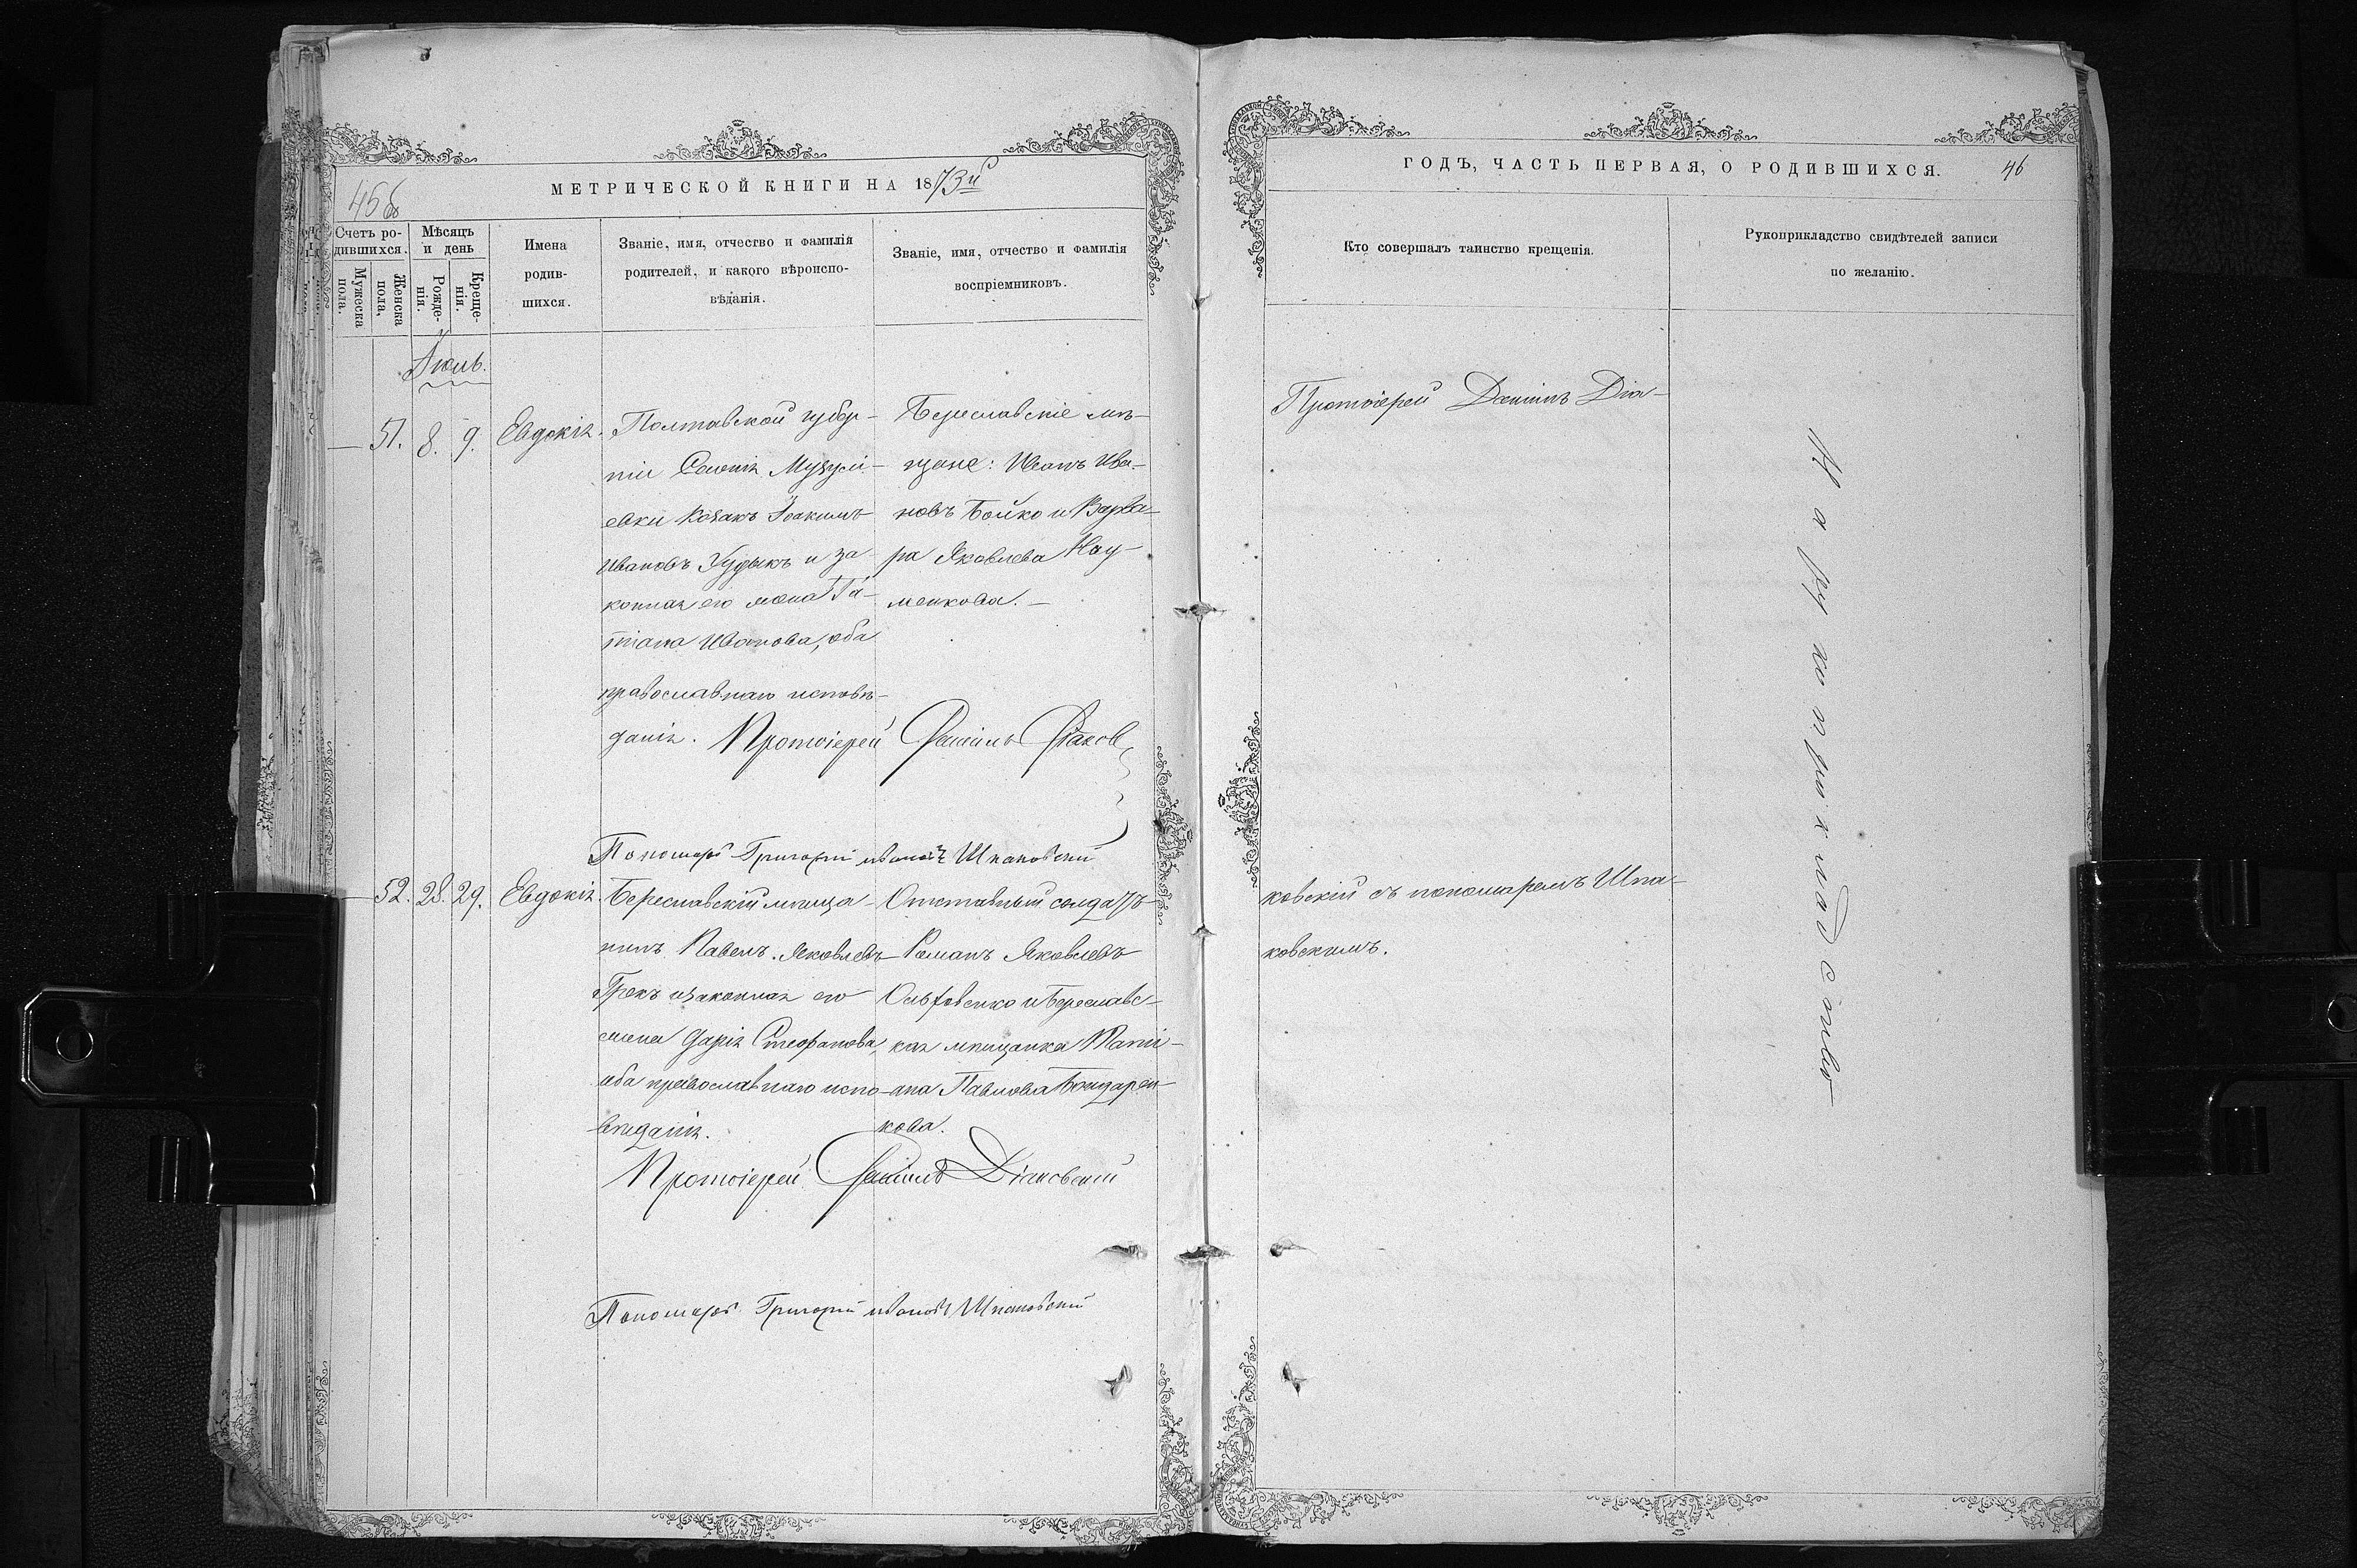 МЕТРИЧЕСКОЙ КНИГИ НА 1873й
456
Счетъ ро-
дившихся.
Мужеска
пола.
Женска
пола,
Мѣсяцъ
и день
Рожде-
нія.
Креще-
нія.
Имена
родив-
шихся.
Званіе, имя, отчество и фамилія
родителей, и какого вѣроиспо-
вѣданія.
Званіе, имя, отчество и фамилія
воспріемниковъ.
Іюль.
51. 8. 9. Евдокія.
Полтавской губер-
ніи
евки козакъ Іоакимъ
Ивановъ Худыкъ и за-
конная его жена Та-
тіана Иванова, оба
православнаго исповѣ-
данія.
Береславскіе мѣ-
щане: Иванъ Ива-
новъ Бойко и Варва-
ра Яковлева Нау-
менкова. —
Протоіерей Даніилъ Діаков
Пономарь Григорій Ивановъ Шпаковскій
52. 28. 29. Евдокія.
Береславскій мѣща-
нинъ Павелъ Яковлевъ
Грекъ и законная его
жена Дарія Стефанова,
оба православнаго испо-
вѣданія.
Отставный солдатъ
Романъ Яковлевъ
и Береславс-
кая мѣщанка Мані-
ана Павлова Бондарен-
кова.
Протоіерей Даніилъ Діаковскій
Пономарь Григорій Ивановъ Шпаковскій
ГОДЪ, ЧАСТЬ ПЕРВАЯ, О РОДИВШИХСЯ.
46
Кто совершалъ таинство крещенія.
Рукоприкладство свидѣтелей записи
по желанію.
Протоіерей Даніилъ Діа-
ковскій съ пономаремъ Шпа-
ковскимъ.